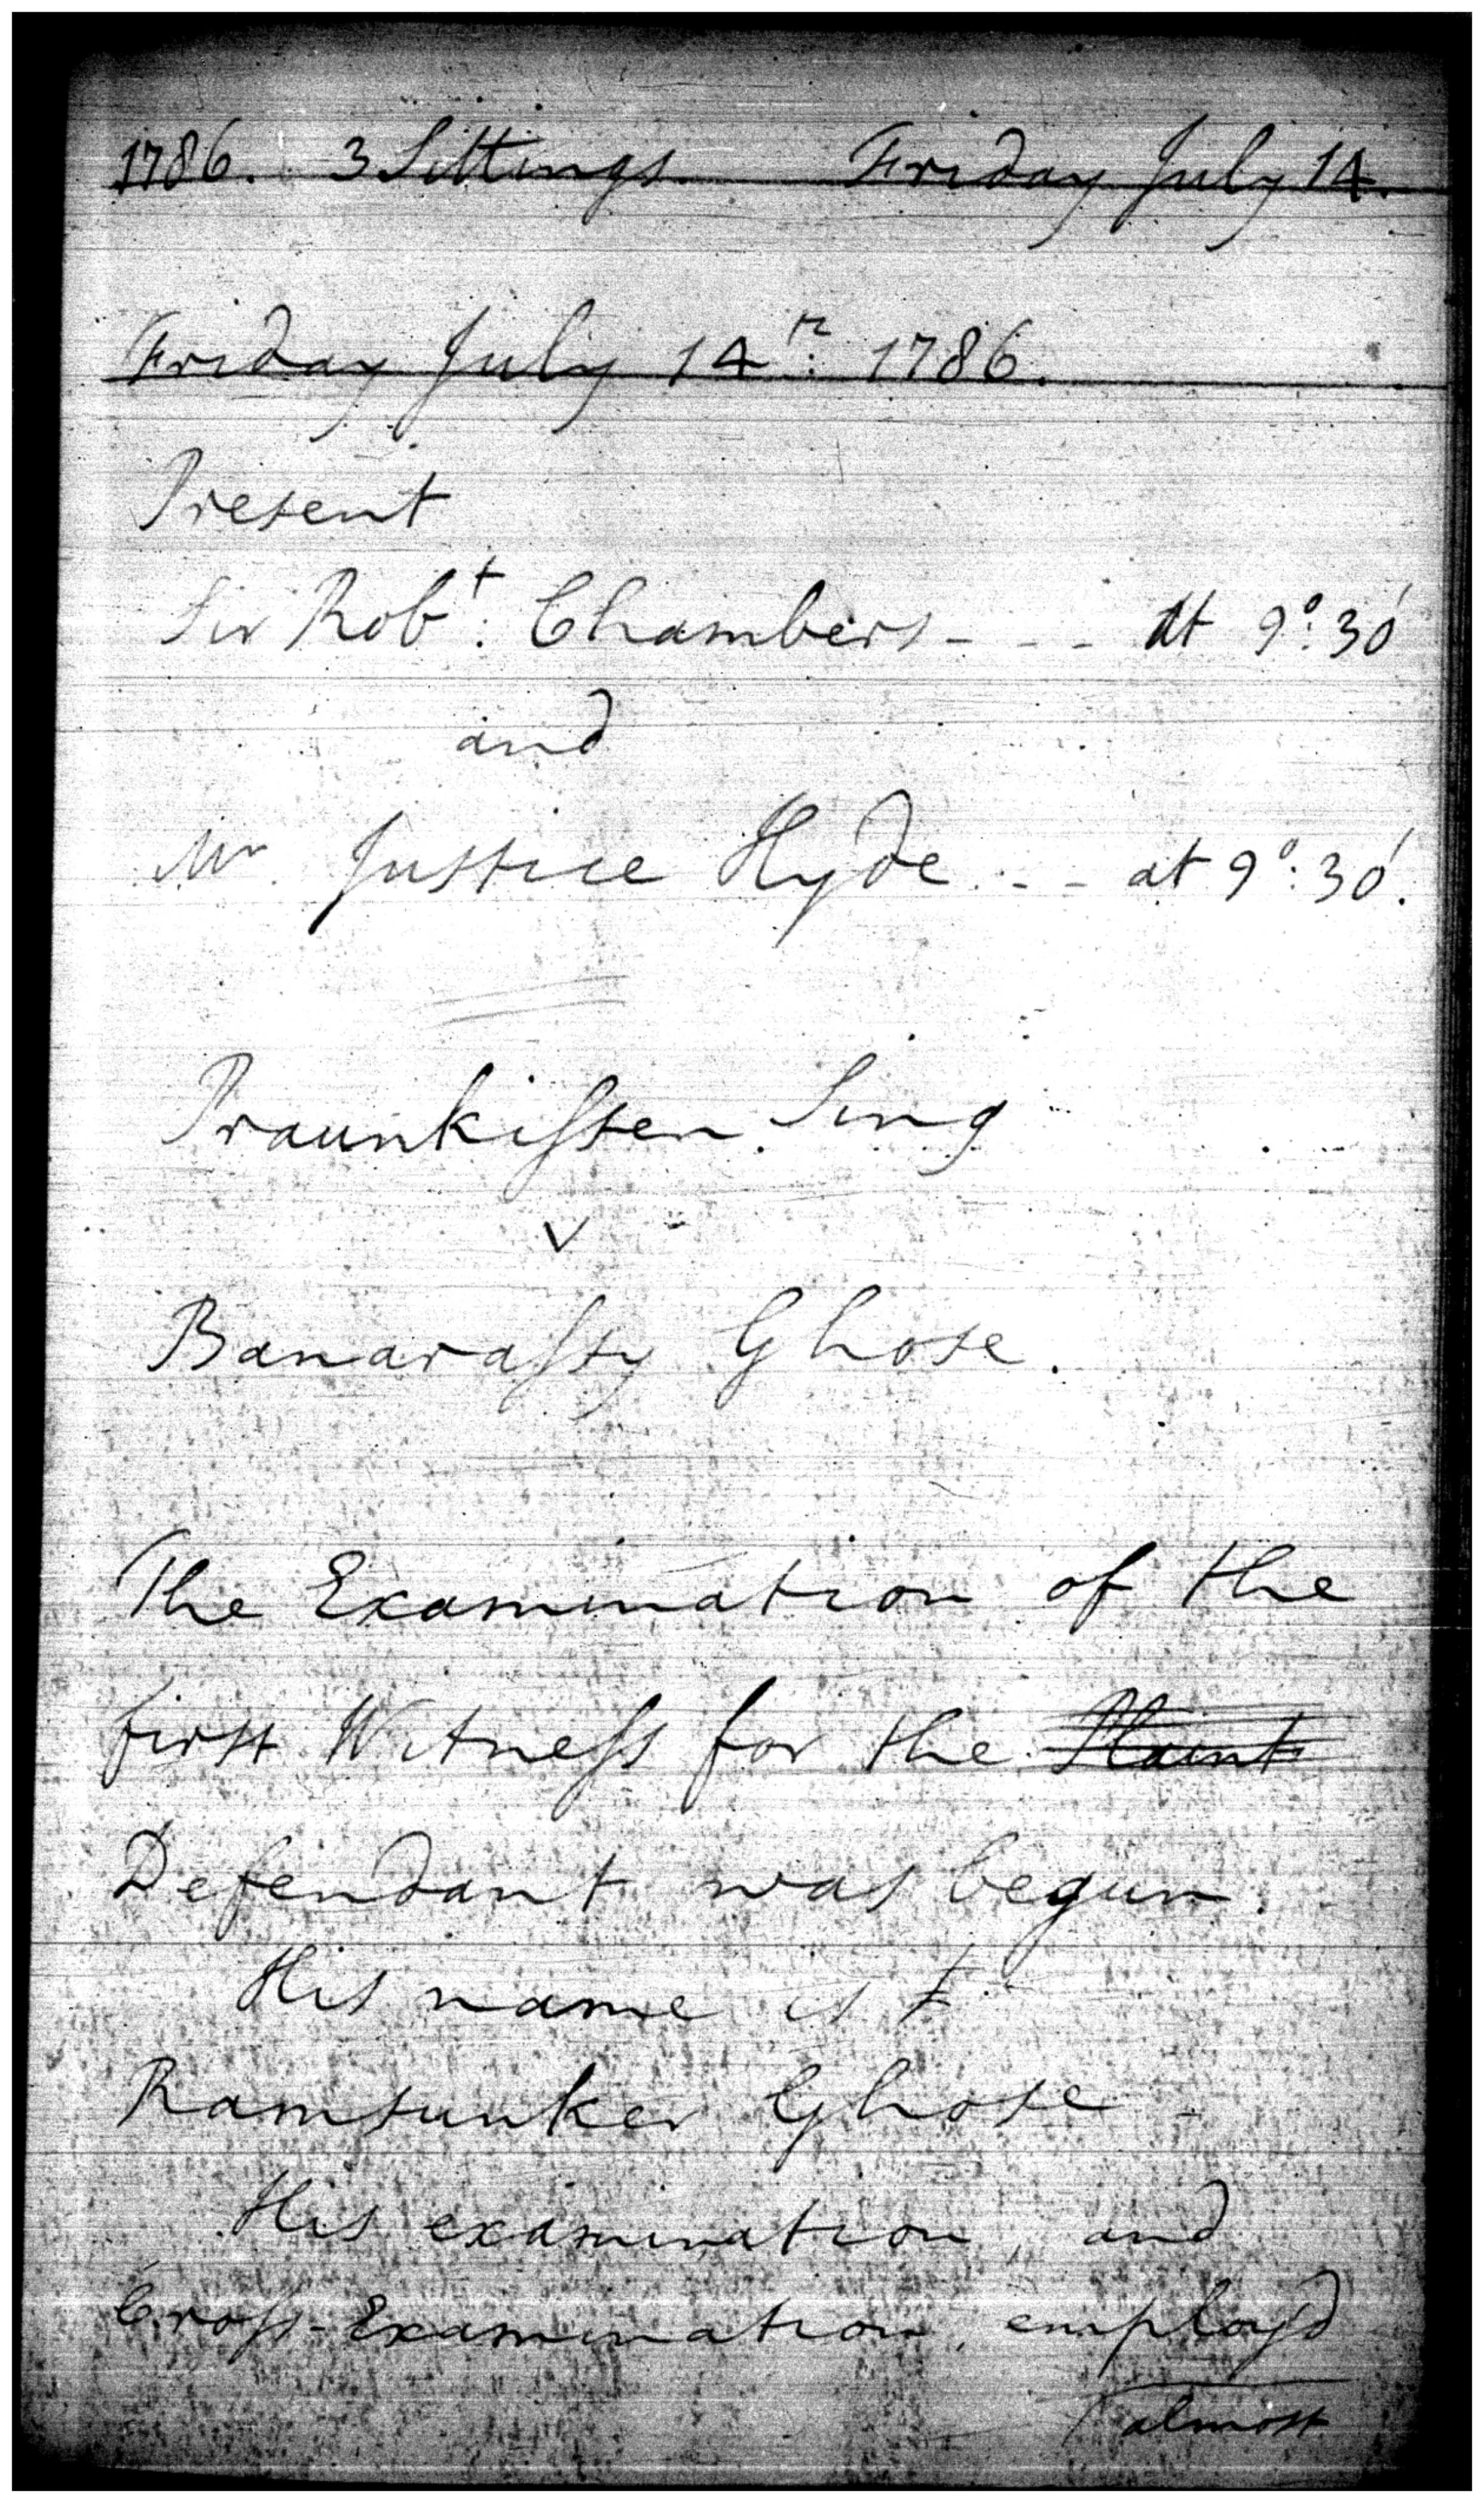 1786. 3 Sittings. Friday July 14.
Friday July 14th: 1786.
Present
Sir Robt: Chambers - - - At 9°: 30'
and
Mr. Justice Hyde - - - at 9°: 30'.
Praunkissen Sing
v
Banarassy Ghose.
The Examination of the
first Witness for the Plaint
Defendant was begun.
His name is
Ramsunker Ghose -
His examination, and
Cross-Examination, employ'd
almost